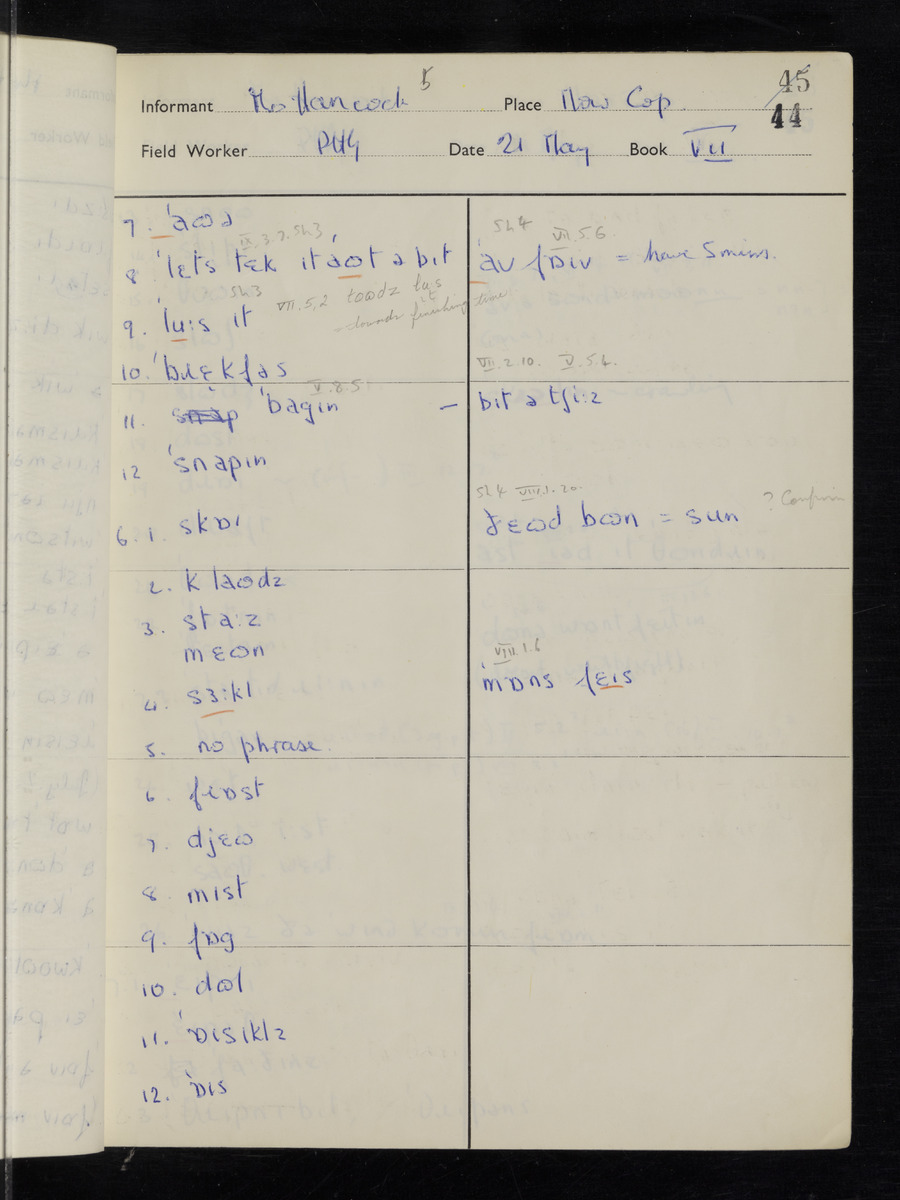 45
Informant Mr Hancock 5 Place Mow Cop 44
Field Worker PHG Date 21 May Book VII
7. ˈaʊə
IX.3.7. Sh3
8 ˈlɛts tɛk itˈaʊt ə bit
Sh3
VII.5.2 tood z lu:s it
9. ˈlu:s it
finishing time
10. ˈbɹɛkfəs
V.8.5.
11. ˈbagin
12 ˈsnapin
6. 1. skɒɪ
2. klaʊdz
3. sta:z
mɛʊn
4. sɜ:kl
5. no phrase.
6. fɹɒst
7. djɛʊ
8. mist
9. fɒg
10. dʊl
11. ˈɒɪsiklz
12. ˈɒɪs
Sh4 VII.5.6.
ˈav fɒɪv = have 5 mins.
VII.2.10. V.5.4.
– bit ə tʃi:z
Sh4 VIII.1.20. ? Confirm
bʊən = sun
VIII.1.6
ˈmɒns fɛis